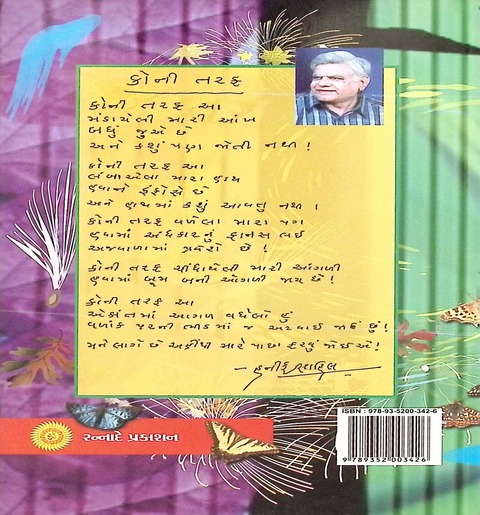 કોની તરફ
કોની તરફ આ
મંડાયેલી મારી આંખ
બધું જુએ છે
અને કશું પણ જોતી નથી !
કોની તરફ આ
લંબાએલા મારા હાથ
હવાને ફંફોસે છે
અને હાથમાં કશું આવતુ નથી !
કોની તરફ વળેલા મારા પગ
હવામાં અંધકારનું ફાનસ લઈ
અજવાળામાં પ્રવેશે છે !
કોની તરફ ચીંધાયેલી મારી આંગળી
હવામાં બૂમ બની ઓગળી જાય છે !
કોની તરફ આ
એકાંતમાં આગળ વધેલો હું
વળાંક પરની ભીડમાં જ અટવાઈ જાઉં છું !
મને લાગે છે અહીંથી મારે પાછા ફરવું જોઈએ !
- હનીફ સાહિલ
રન્નાદે પ્રકાશન
ISBN : 978-93-5200-342-6
9 789352 003426